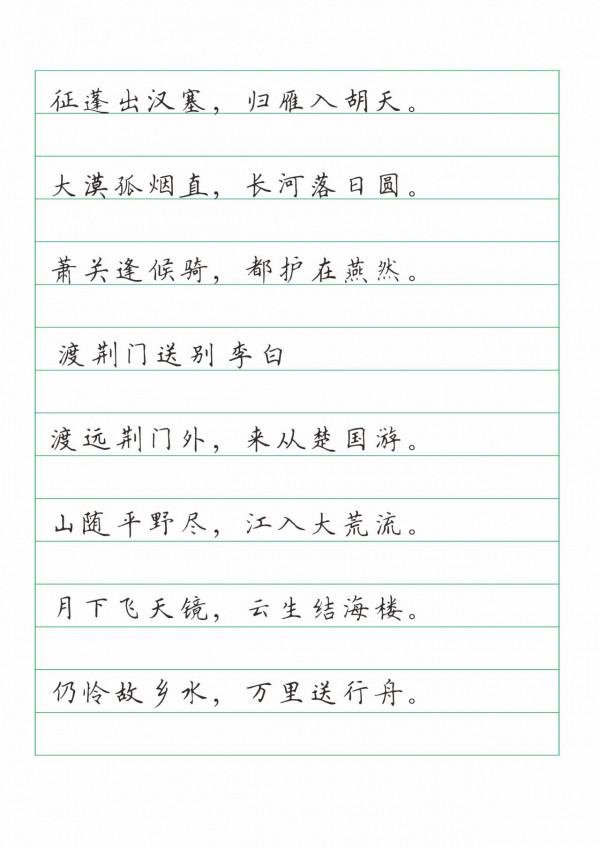 征蓬出汉塞，归雁入胡天。
大漠孤烟直，长河落日圆。
萧关逢候骑，都护在燕然。
渡荆门送别 李白
渡远荆门外，来从楚国游。
山随平野尽，江入大荒流。
月下飞天镜，云生结海楼。
仍怜故乡水，万里送行舟。